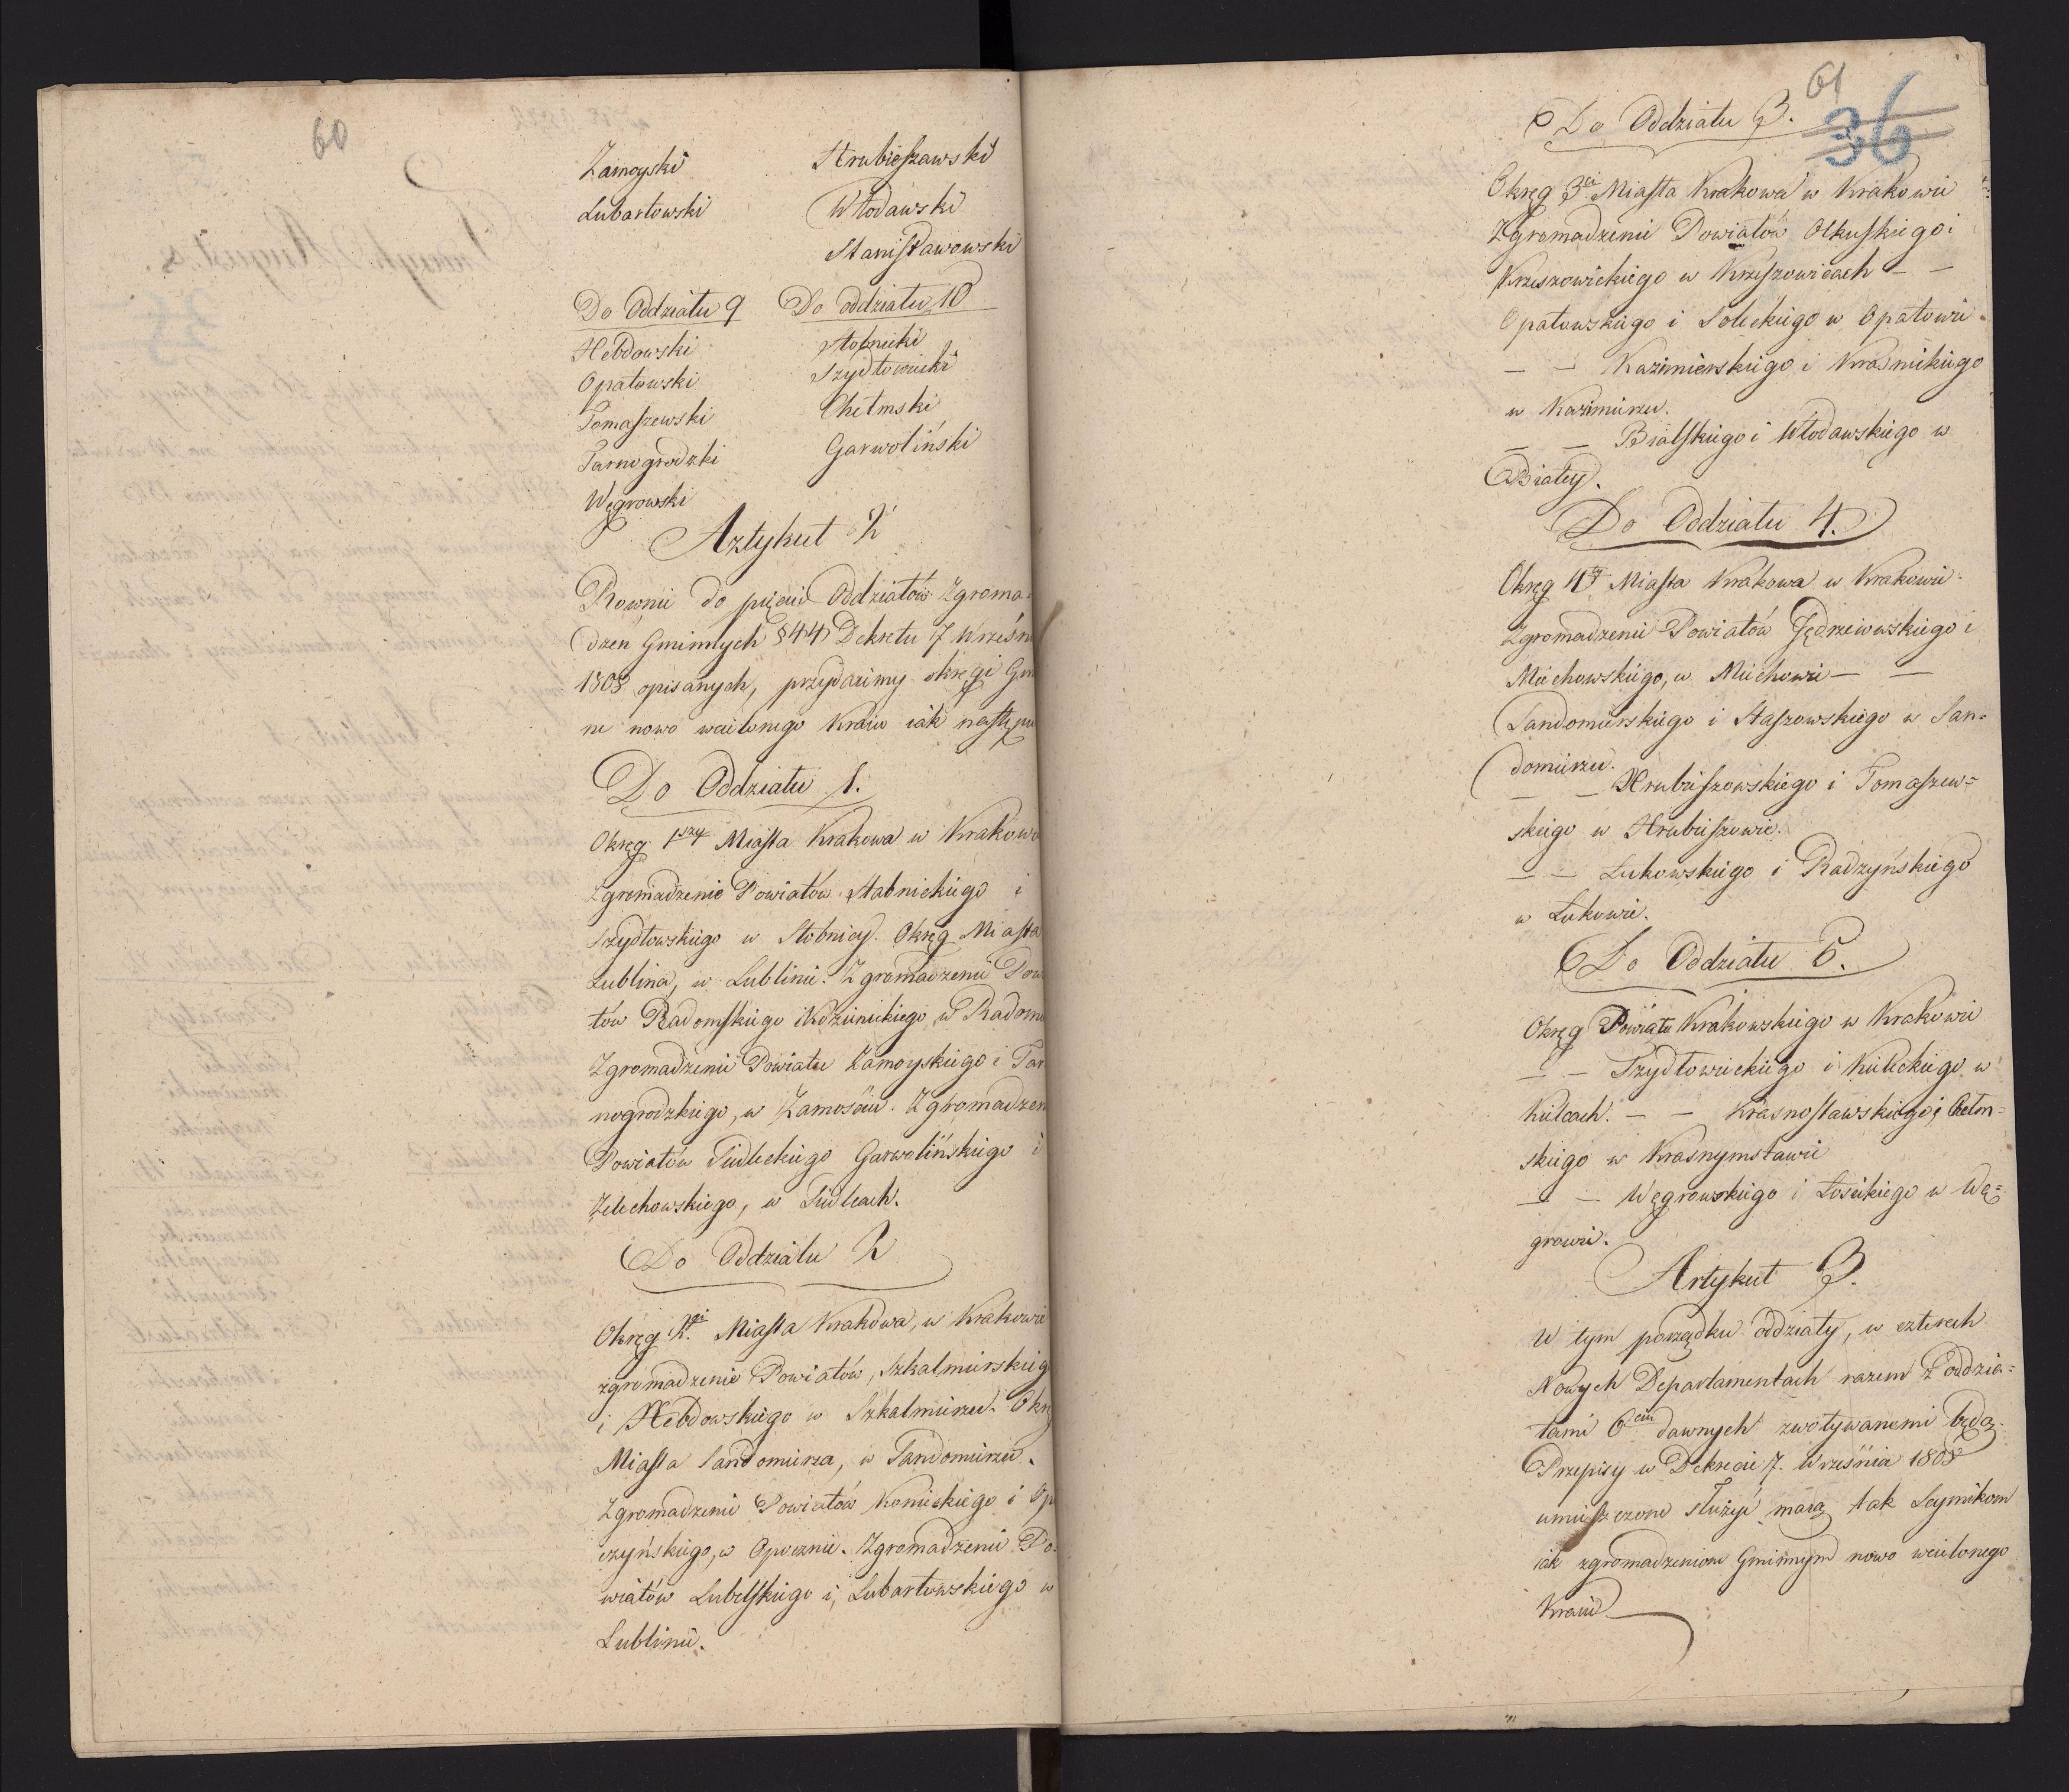 60
Zamoyski Hrubieszawski
Lubartowski Włodawski
Stanisławowski
Do Oddziału 9 Do oddziału 10
Hebdowski Stobnicki
Opatowski Szydłowiecki
Tomaszewski Chełmski
Tarnogrodzki Garwoliński
Węgrowski
Artykuł 2
Rownie do pięciu Oddziałów Zgroma=
dzeń Gminnych §44 Dekretu 7 Wrześn
1808 opisanych, przydaiemy okręgi Gm
ne nowo wcielonego Kraiu iak następu
Do Oddziału 1.
Okręg 1szy Miasta Krakowa w Krakowi
Zgromadzenie Powiatów Stabnickiego i
Szydłowskiego w Stobnicy. Okręg Miasta
Lublina, w Lublinie. Zgromadzenie Pow
tów Radomskiego i Kozienickiego, w Radomi
Zgromadzenie Powiatu Zamoyskiego i Tar
nogrodzkiego, w Zamościu. Zgromadzen
Powiatów Siedleckiego Garwolińskiego i
Żelechowskiego, w Siedlcach.
Do Oddziału 2
Okręg 2gi Miasta Krakowa, w Krakowie
zgromadzenie Powiatów, Szkalmierskieg
i Hebdowskiego w Szkalmierzu. Okrę
Miasta Sandomierza, w Sandomierzu.
Zgromadzenie Powiatów Konieckiego i Op
czyńskiego, w Opocznie. Zgromadzenie Po=
wiatów Lubelskiego i, Lubartowskiego w
Lublinie.
61
36
Do Oddziału 3.
Okręg 3ci Miasta Krakowa w Krakowie
Zgromadzenie Powiatów Olkuskiego i
Krzeszowickiego w Krzeszowicach — —
Opatowskiego i Soleckiego w Opatowie.
— — Kazimierskiego i Kraśnickiego
w Kazimierzu.
— — Bialskiego i Włodawskiego w
Białey.
Do Oddziału 4.
Okręg 4ty Miasta Krakowa w Krakowie.
Zgromadzenie Powiatów Jędrzeiowskiego i
Miechowskiego, w Miechowie — —
Sandomierskiego i Staszowskiego w San=
domierzu.
— — Hrubieszowskiego i Tomaszew=
skiego w Hrubieszowie.
— — Łukowskiego i Radzyńskiego
w Łukowie.
Do Oddziału 5.
Okręg Powiatu Krakowskiego w Krakowie
— — Szydłowieckiego i Kieleckiego w
Kielcach. — — Krasnostawskiego i Chełm=
skiego w Krasnymstawie
— — Węgrowskiego i Łosickiego w Wę=
growie.
Artykuł 3.
W tym porządku oddziały, w czterech
Nowych Departamentach razem z oddzia=
łami 6ciu dawnych zwoływanemi będą.
Przepisy w Dekrecie 7. Września 1808
umieszczone służyć maią tak Seymikom
iak zgromadzeniom Gminnym nowo wcielonego
Kraiu